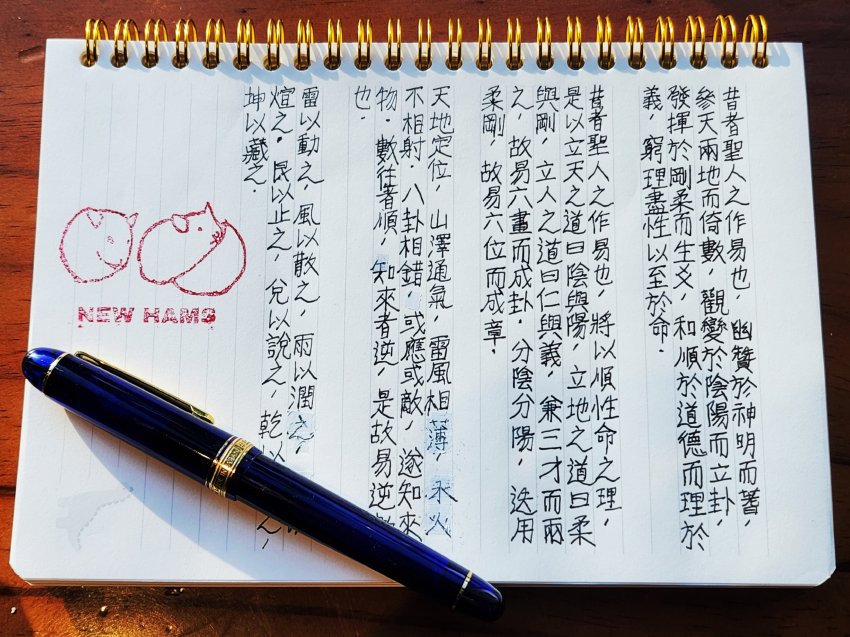 昔者聖人之作易也，幽贊於神明而蓍，
參天兩地而倚數，觀變於陰陽而立卦，
發揮於剛柔而生爻，和順於道德而理於
義，窮理盡性以至於命．
昔者聖人之作易也，將以順性命之理，
是以立天之道曰陰與陽，立地之道曰柔
與剛，立人之道曰仁與義，兼三才而兩
之，故易六畫而成卦．分陰分陽，迭用
柔剛，故易六位而成章．
天地定位，山澤通氣，雷風相薄，水火
不相射．八卦相錯，或應或敵，遂知來
物．數往者順，知來者逆，是故易逆數
也．
雷以動之，風以散之，雨以潤之，
煊之．艮以止之，兌以說之，乾以之，
坤以藏之．
NEW HAMS